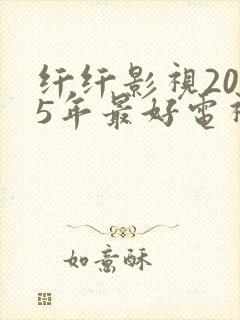 纤纤影視20
5年最好電視
如意酥